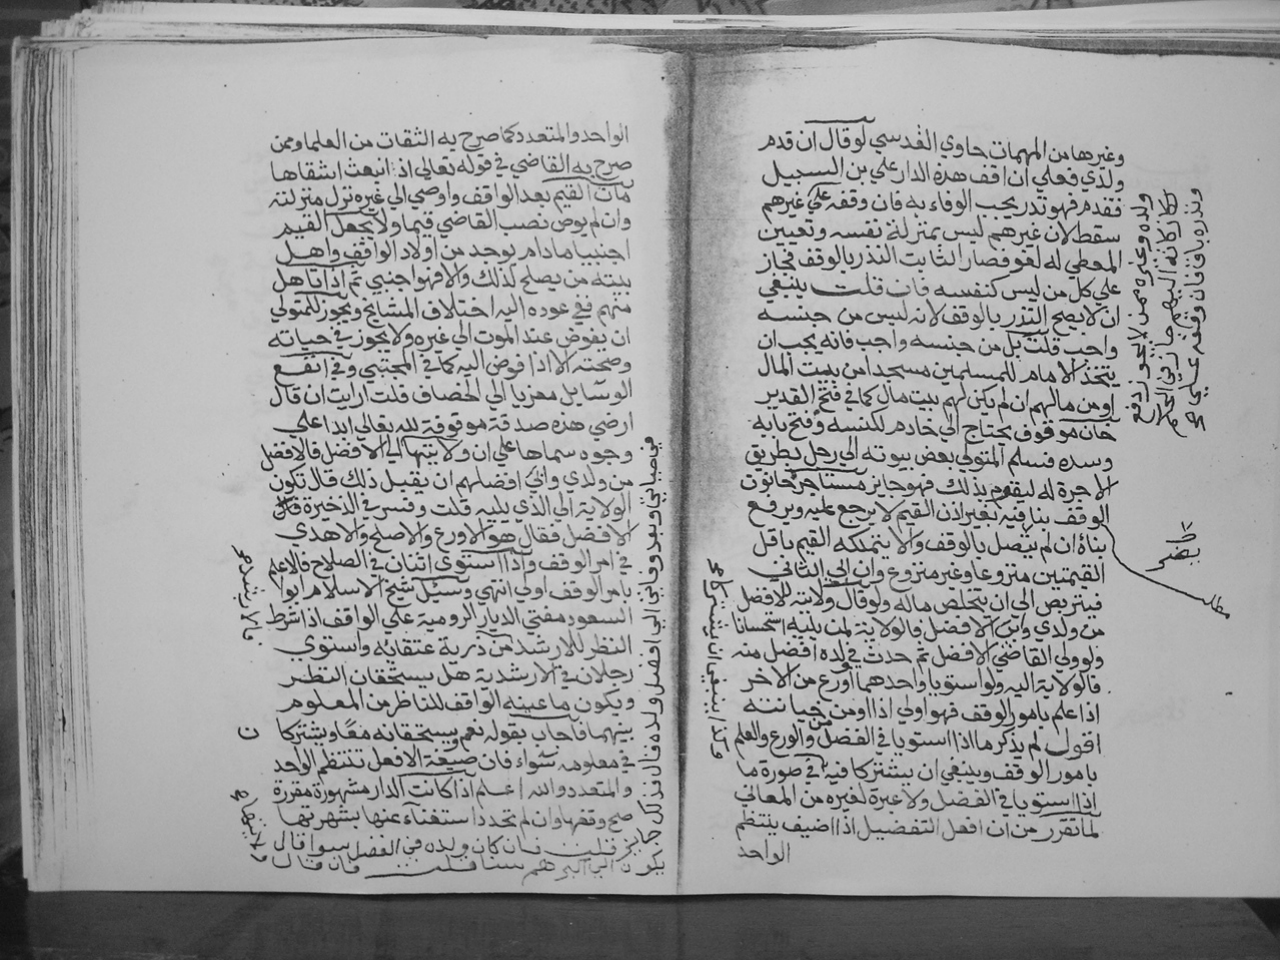 وغيرها من المهمات حاوي القدسي لو قال ان قدم
ولدي فعلي ان اقف هذه الدار علي بن السبيل
فقدم فهو نذر يجب الوفاء به فان وقفه علي غيرهم
سقط لان غيرهم ليس بمنزلة نفسه وتعيين
المعطي له لغو فصار الثابت النذر بالوقف فجاز
علي كل من ليس كنفسه فان قلت ينبغي
ان لا يصح النذر بالوقف لانه ليس من جنسه
واجب قلت بل من جنسه واجب فانه يجب ان
يتخذ الامام للمسلمين مسجدا من بيت المال
او من مالهم ان لم يكن لهم بيت مال كما في فتح القدير
خان موقوف يحتاج الي خادم لكنسه وفتح بابه
وسده فسلم المتولي بعض بيوته الي رجل بطريق
الاجرة له ليقوم بذلك فهو جايز مستاجر حانوت
الوقف بنا فيه بغير اذن القيم لا يرجع عليه ويرفع
بناءه ان لم يتصل بالوقف والا يتملكه القيم باقل
القيمتين منزوعا وغير منزوع وان ابي الثاني
فيتربص الي ان يتخلص ماله ولو قال ولايته للافضل
من ولدي وابي الافضل فالولاية لمن يليه استحسانا
ولو ولي القاضي الافضل ثم حدث في ولده افضل منه
فالولاية اليه ولو استويا واحدهما اورع من الاخر
اذا علم بامور الوقف فهو اولي اذا اومن خيانته
اقول لم يذكر ما اذا استويا في الفضل والورع والعلم
بامور الوقف وينبغي ان يشتركا فيه في صورة ما
اذا استويا في الفضل ولا عبرة لغيره من المعاني
لما تقرر من ان افعل التفضيل اذا اضيف ينتظم
الواحد
ولده وغيره ممن لا يجوز دفع
الزكاة اليهم جاز في الحكم
ونذره باق فان وقفه علي
مطلب
وكذا ينبغي ان يشتركا
الواحد والمتعدد كما صرح به الثقات من العلما وممن
صرح به القاضي في قوله تعالي اذ انبعث اشقاها
مات القيم بعد الواقف واوصي الي غيره نزل منزلته
وان لم يوص نصب القاضي قيما ولا يجعل القيم
اجنبيا ما دام يوجد من اولاد الواقف واهل
بيته من يصلح لذلك والا فهو اجنبي ثم اذا تاهل
منهم ففي عوده اليه اختلاف المشايخ ويجوز للمتولي
ان يفوض عند الموت الي غيره ولا يجوز في حياته
وصحته الا اذا فوض اليه كما في المجتبي وفي انفع
الوسايل معزيا الي الخصاف قلت ارايت ان قال
ارضي هذه صدقة موقوفة لله تعالي ابدا علي
وجوه سماها علي ان ولايتها الي الافضل فالافضل
من ولدي وابي افضلهم ان يقبل ذلك قال تكون
الولاية الي الذي يليه قلت وفسر في الذخيرة
الافضل فقال هو الاورع والاصلح والاهدي
في امر الوقف واذا استوي اثنان في الصلاح فالاعلم
بامر الوقف اولي انتهي وسئل شيخ الاسلام ابوا
السعود مفتي الديار الرومية علي الواقف اذا شرط
النظر للارشد من ذرية عتقائه واستوي
رجلان في الارشدية هل يستحقان النظر
ويكون ما عينه الواقف للناظر من المعلوم
بينهما فاجاب بقوله نعم ويستحقانه معا ويشتركا
في معلومه سواء فان صيغة الافعل تنتظم الواحد
والمتعدد والله اعلم اذا كانت الدار مشهورة مقررة
صح وقفها وان لم تحدد استغناء عنها بشهرتها
قلت فان كان ولده في الفضل سوا قال
يكون الي اكبرهم سنا قلت فان قال
في حياتي وبعد وفاتي الي افضل ولده قال ذلك جايز
فالارشد